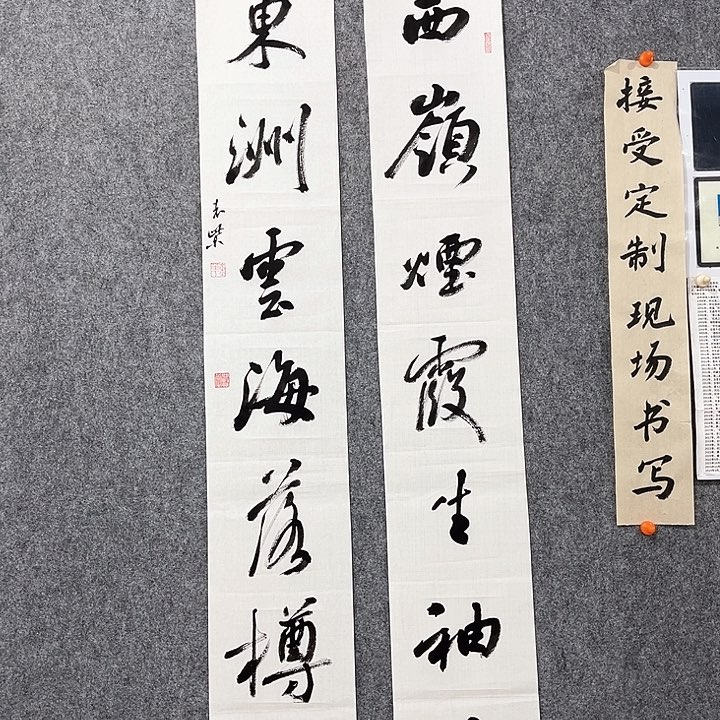 西嶺煙霞生袖
東洲雲海落樽
接受定制现场书写